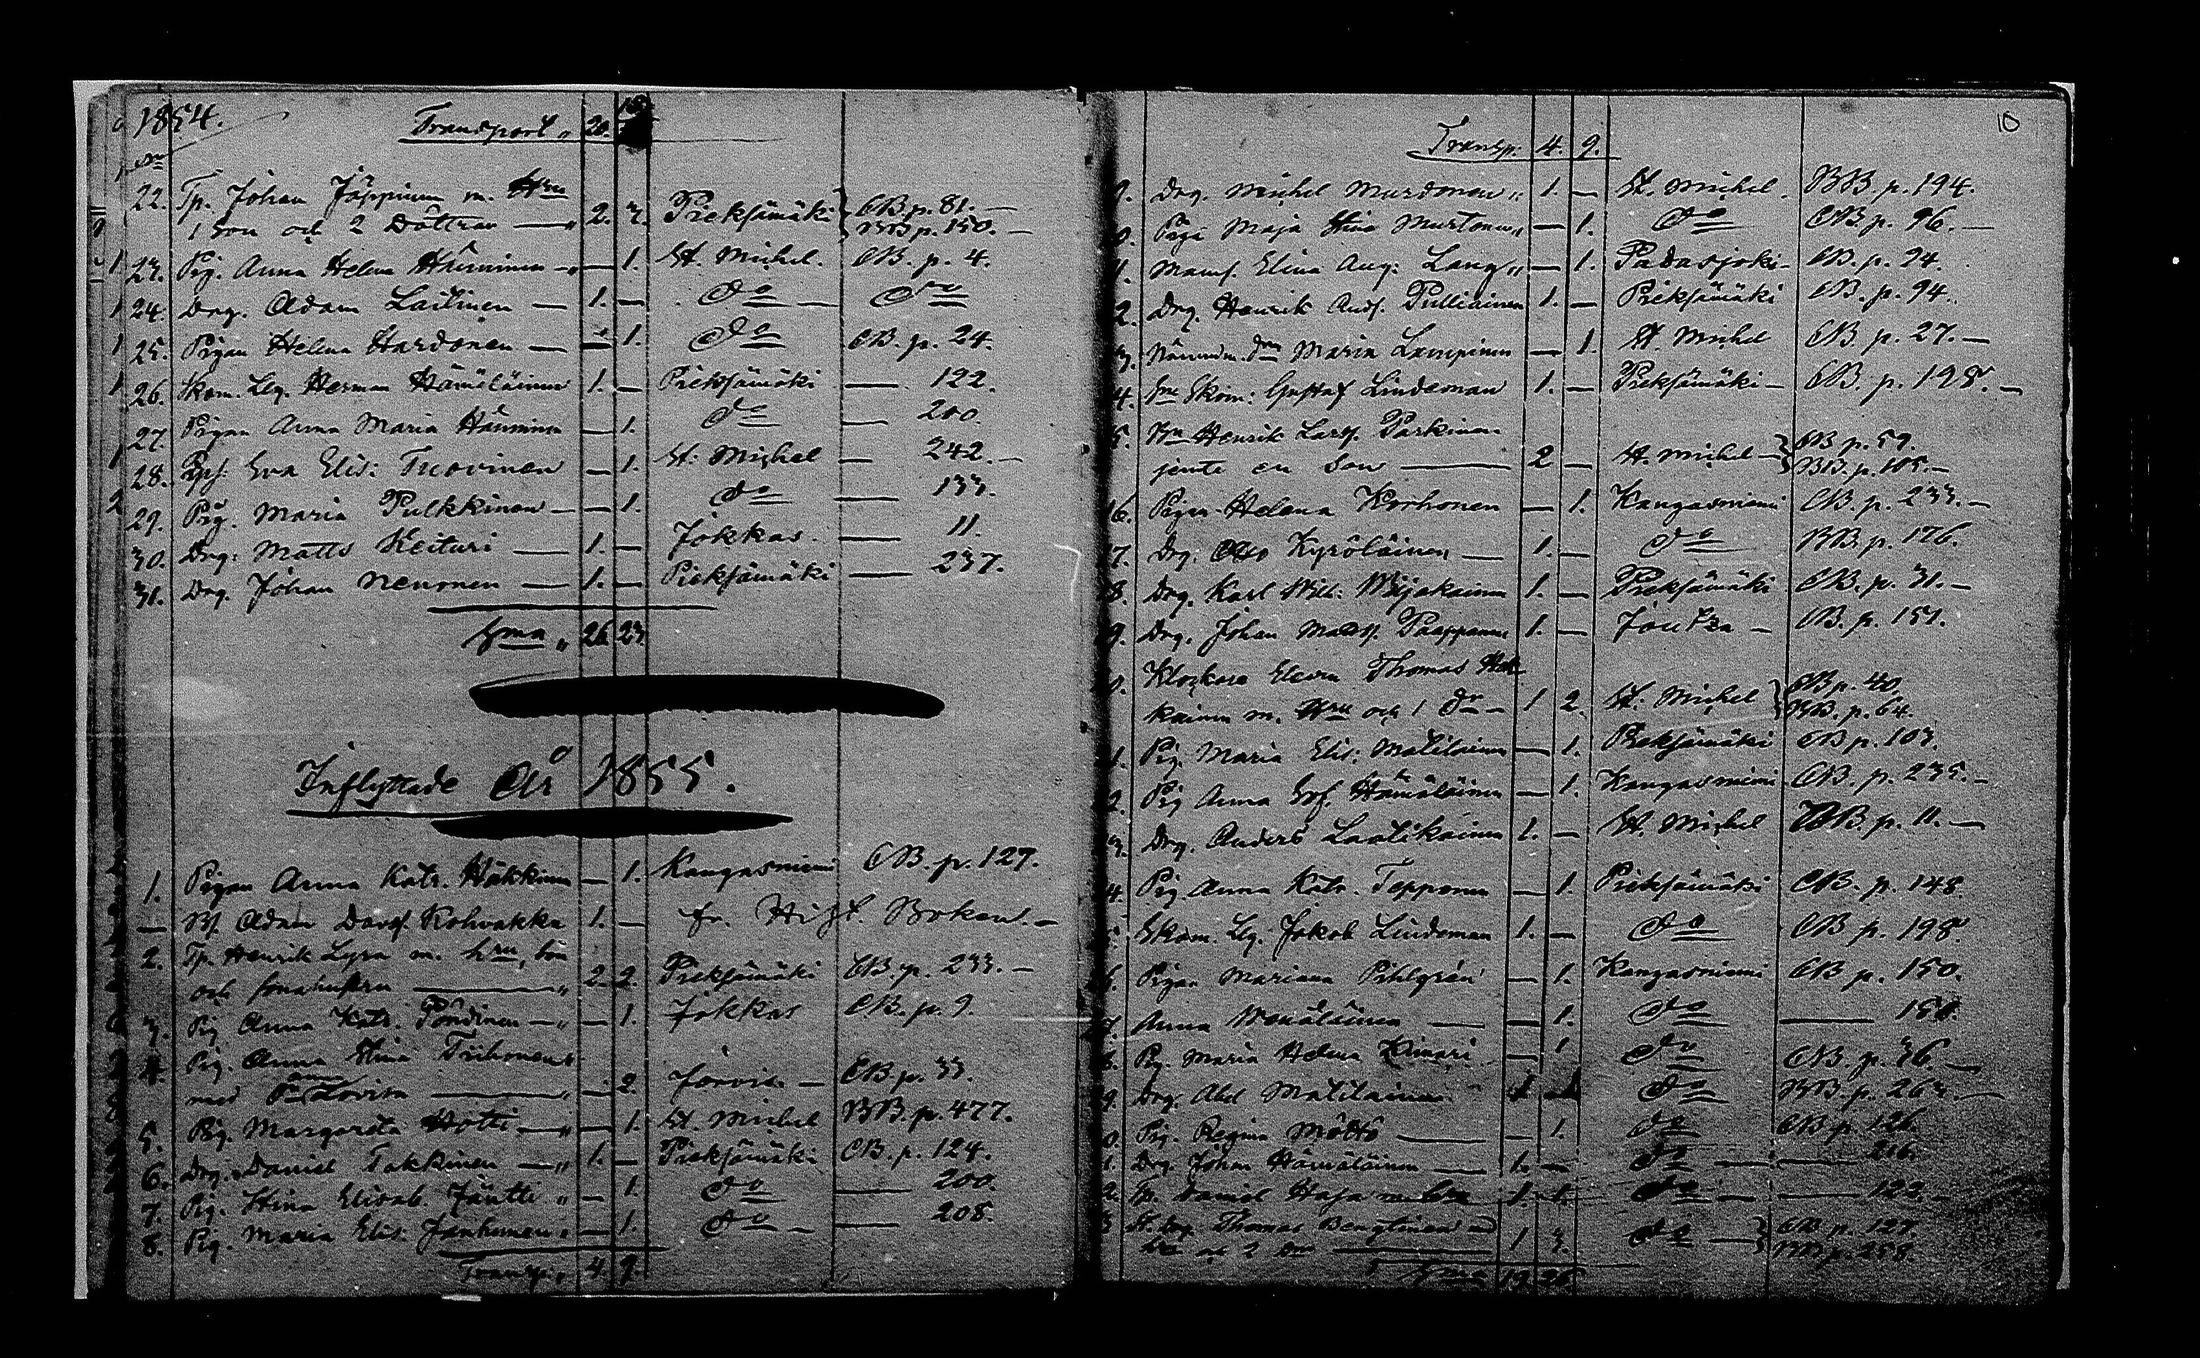 1854.
Transport „ 20. 18
No
22. Tp. Johan Jäppinen m. Hru
1 Son och 2 Döttrar — 2. 3. Pieksämäki CB p. 81. —
BB p. 150. —
23. Pig. Anna Helena Hänninen — — 1. St. Michel. CB. p. 4.
24. Drg. Adam Laitinen — 1. — Do — Do
25. Pigan Helena Hardonen — — 1. Do CB. p. 24.
26. Skom. Lg. Herman Hämäläinen 1. — Pieksämäki — 122.
27. Pigan Anna Maria Hänninen — 1. Do — 200.
28. Eva Elis: Tuovinen — 1. St. Michel — 242. —
29. Pig. Maria Pulkkinen — — 1. Do — 133.
30. Drg: Matts Keituri — 1. — Jokkas. — 11.
31. Drg. Johan Nenonen — 1. — Pieksämäki — 237.
Sma „ 26 23
Inflyttade År 1855.
1. Pigan Anna Katr. Häkkinen — 1. Kangasniemi CB. p. 127.
— Adam Davs. Kohvakka 1. — fr.
2. Tp. Henrik Lyra m. hru, son
och sonahustru — „ 2. 2. Pieksämäki CB. p. 233. —
3. Pig Anna Katr. Pöndinen — „ — 1. Jokkas CB. p. 9.
4. Pig. Anna Stina Tiihonen
med Lovisa — „ — 2. Jorois — CB. p. 33.
5. Pig. Margareta Hotti — „ — 1. St. Michel BB. p. 477.
6. Drg. Daniel Takkinen — „ 1. — Pieksämäki CB. p. 124.
7. Pig. Stina Elisab. Jäntti „ — 1. Do — 200.
8. Pig. Maria Elis. Janhunen „ — 1. Do — — 208.
Transp. „ 4. 9.
10
Transp. 4. 9.
9. Drg. Michel Murdonen „ 1. — St. Michel. BB. p. 194.
0. Piga Maja Stina Murtonen „ — 1. Do CB. p. 96. —
1. Mams. Elina Aug: Lang „ — 1. Padasjoki — CB. p. 24.
2. Drg. Henrik Ands. Pulliainen 1. — Pieksämäki CB. p. 94.
3. Maria Lampinen — 1. St. Michel CB. p. 27. —
4. Skom: Gustaf Lindeman 1. — Pieksämäki — CB. p. 198. —
5. Bn Henrik Larss. Parkinen
jemte en Son — 2 — St. Michel — CB p. 59.
BB. p. 105. —
16. Pigan Helena Korhonen — 1. Kangasniemi CB. p. 233. —
7. Drg: Otto Kyröläinen — 1. — Do BB. p. 176.
8. Drg. Karl Wilh: Wijakainen 1. — Pieksämäki CB. p. 31. —
9. Drg. Johan Matss. Paappanen 1. — Joutza — CB. p. 151.
0. Klockare Eleven Thomas
kainen m. Hru och 1 dr — 1 2. St. Michel CB p. 40.
BB. p. 64.
1. Pig. Maria Elis: Matilainen — 1. Pieksämäki CB p. 103.
2. Pig Anna Hämäläinen — 1. Kangasniemi CB. p. 235. —
3. Drg. Anders Laatikainen 1. — St. Michel CB. p. 11. —
4. Pig. Anna Katr. Tepponen — 1. Pieksämäki CB. p. 148
5. Skom. Lg. Jakob Lindeman 1. — Do CB p. 198.
6. Pigan Mariana Pihlgrén — 1. Kangasniemi CB p. 150.
7. Anna Wenäläinen — — 1. Do — 150.
8. Pig. Maria Helena — 1 Do CB. p. 36. —
9. Drg. Abel Matilainen 1 — Do BB. p. 263. —
0. Pig. Regina Möttö — — 1. Do CB p. 126
1. Drg. Johan Hämäläinen — 1. — Do — 216.
2. Tp. Daniel Haja m. hru 1. 1. Do — 122. —
3 Thomas Bengtinen m
hru och 2 — 1 3. Do — CB p. 127.
BB p. 258
Sma 19 26